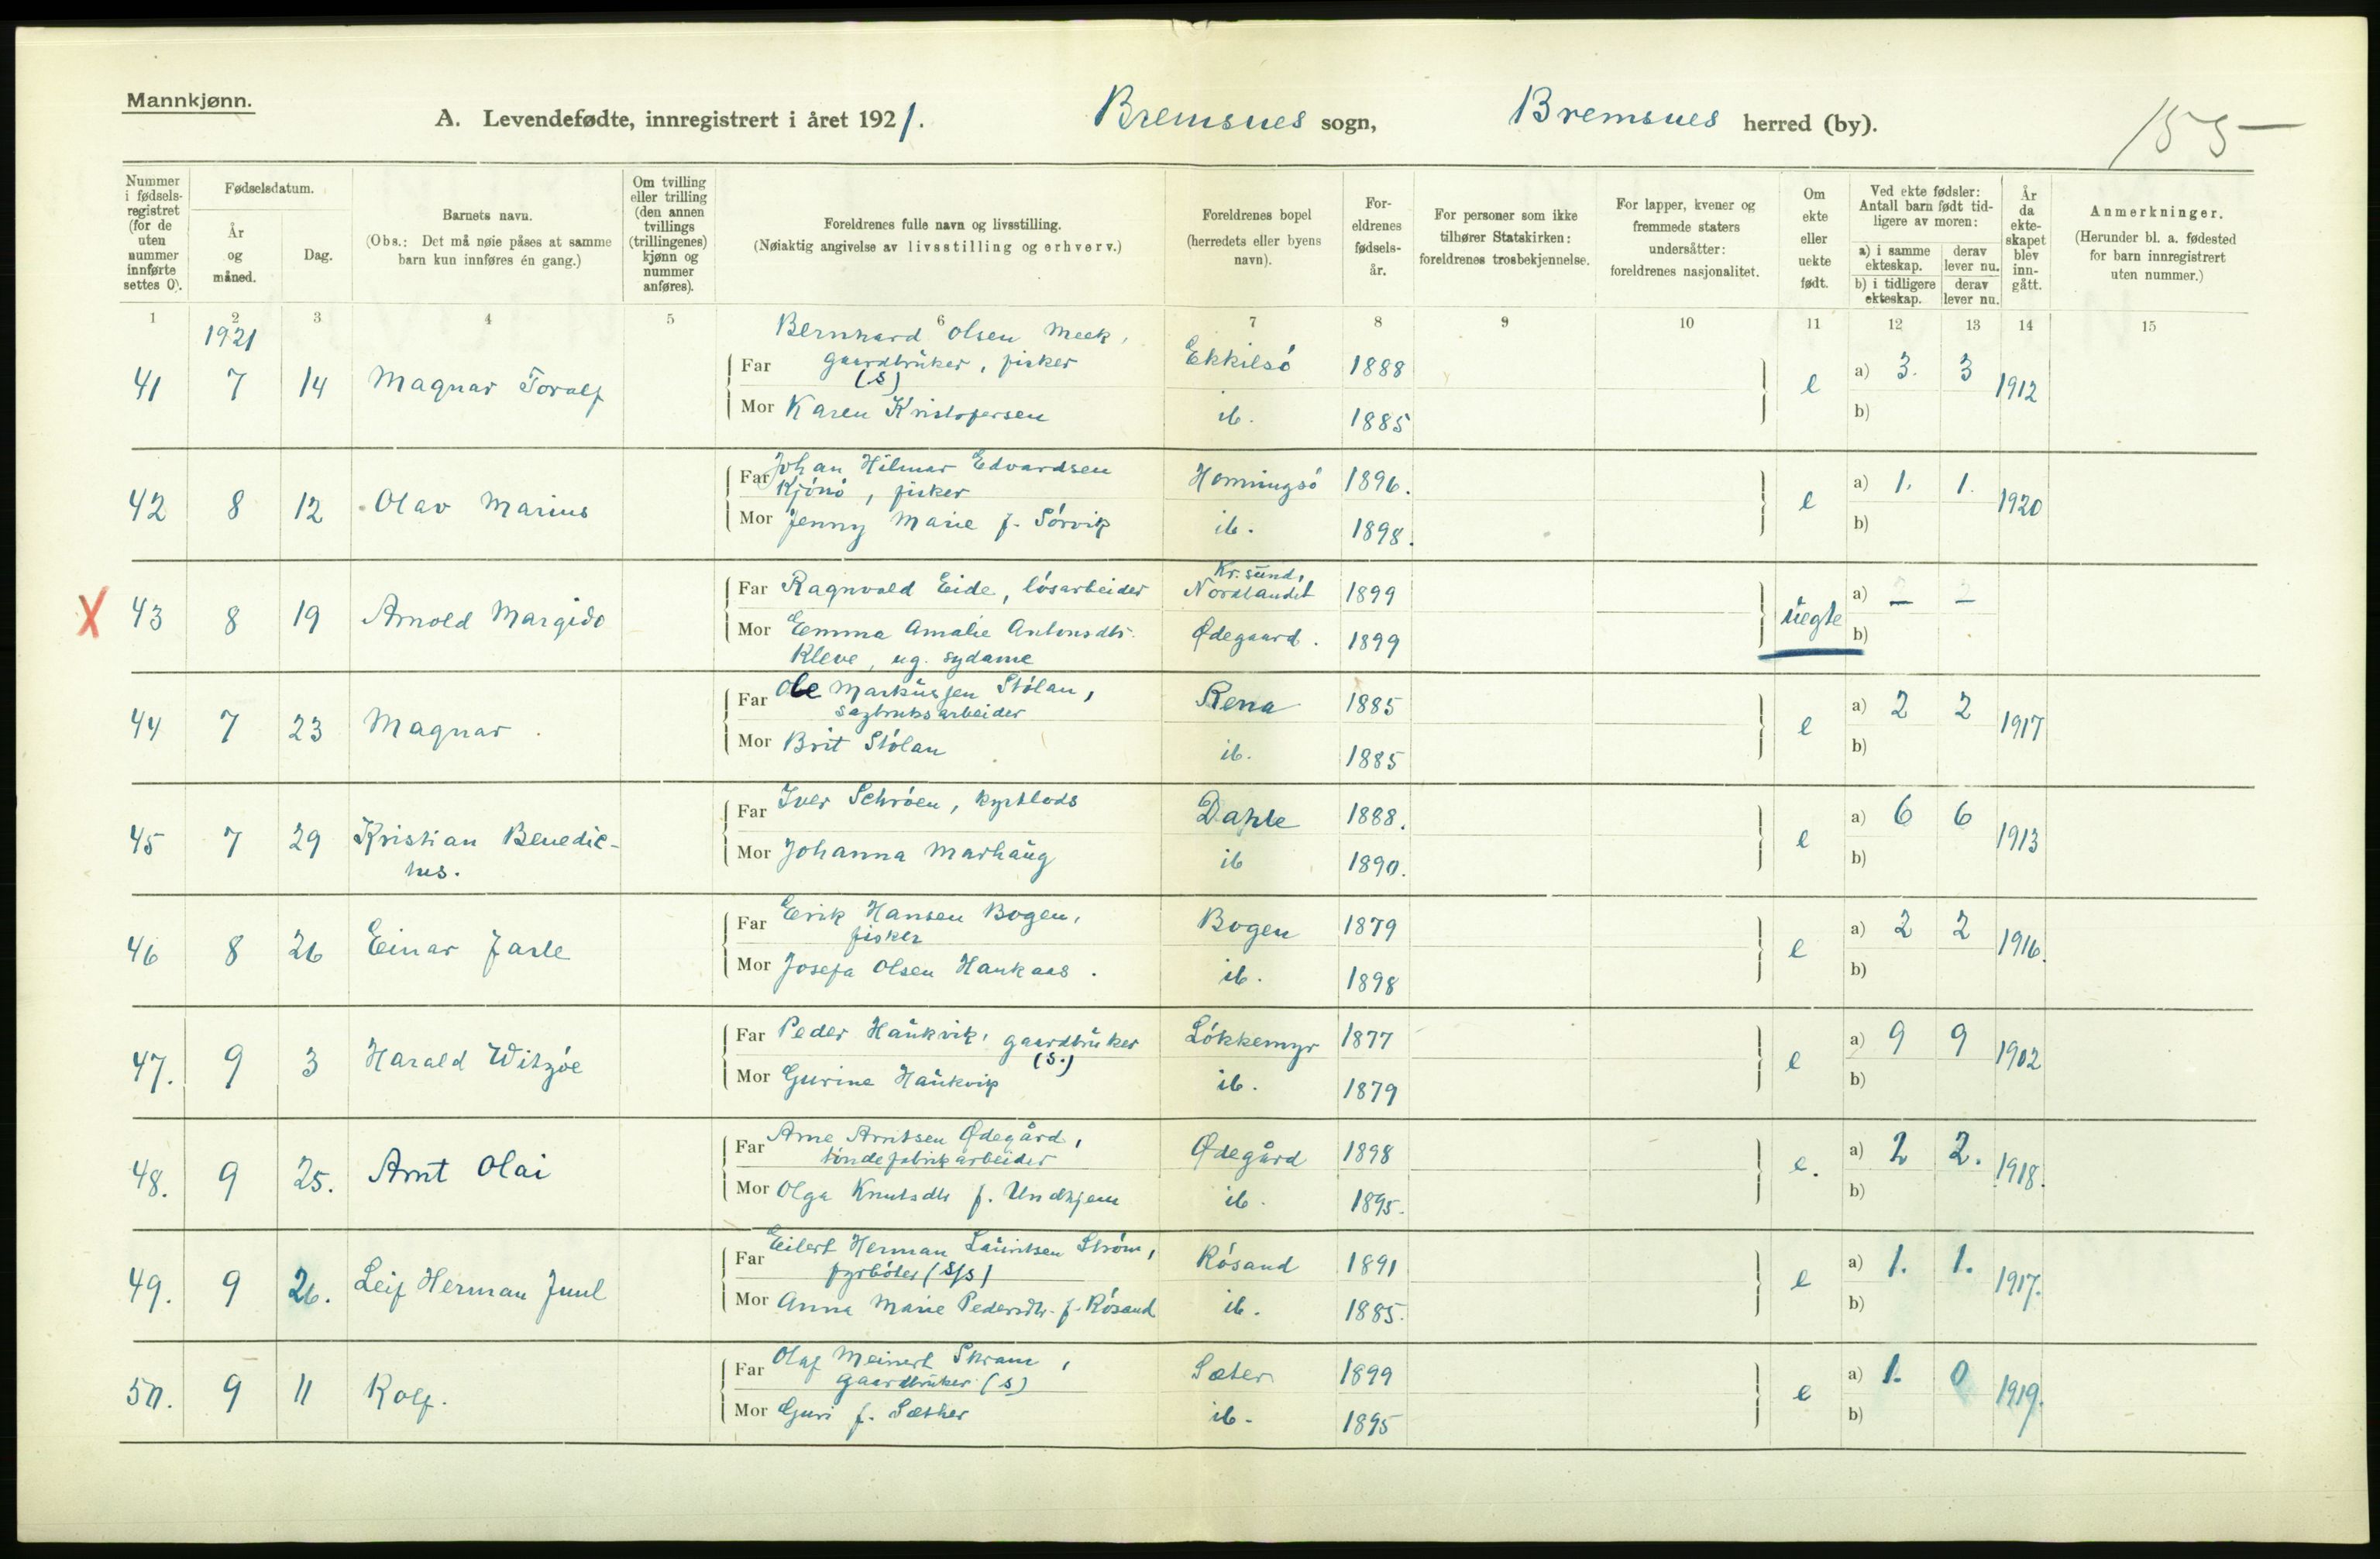 Mannkjønn.
A. Levendefødte, innregistrert i året 1921. Bremsnes sogn, Bremsnes herred (by).
155
Nummer i fødselsregistret (for de uten nummer innførte settes 0).
Fødselsdatum.
År og måned.
Dag.
Barnets navn.
(Obs.: Det må nøie påses at samme barn kun innføres én gang.)
Om tvilling eller trilling (den annen tvillings (trillingenes) kjønn og nummer anføres).
Foreldrenes fulle navn og livsstilling.
(Nøiaktig angivelse av livsstilling og erhverv.)
Foreldrenes bopel (herredets eller byens navn).
Foreldrenes fødselsår.
For personer som ikke tilhører Statskirken: foreldrenes trosbekjennelse.
For lapper, kvener og fremmede staters undersåtter: foreldrenes nasjonalitet.
Om ekte eller uekte født.
Ved ekte fødsler: Antall barn født tidligere av moren:
a) i samme ekteskap. derav lever nu.
b) i tidligere ekteskap. derav lever nu.
År da ekteskapet blev inngått.
Anmerkninger.
(Herunder bl. a. fødested for barn innregistrert uten nummer.)
1 2 3 4 5 6 7 8 9 10 11 12 13 14 15
1921
Bernhard Olsen Meek,
41 7 14 Magnar Toralf Far gaardbruker, fisker (S) Ekkilsö 1888 e a) 3. 3 1912
Mor Karen Kristofersen ib. 1885 b)
Johan Hilmar Edvardsen
42 8 12 Olav Marius Far Kjönö, fisker Honningsö 1896. e a) 1. 1. 1920
Mor Jenny Marie f. Sörvik ib. 1898. b)
Kr.sund,
X 43 8 19 Arnold Margido Far Ragnvald Eide, lösarbeider Nordlandet 1899 uegte a) – –
Mor Emma Amalie Antonsdtr. Ødegaard. 1899 b)
Kleve, ug. sydame
Ole Markussen Stölan,
44 7 23 Magnar. Far sagbruksarbeider Rena 1885 e a) 2 2 1917
Mor Brit Stölan ib. 1885 b)
45 7 29 Kristian Benedic- Far Iver Schröen, kystlods Dahle 1888. e a) 6 6 1913
tus. Mor Johanna Marhaug ib 1890. b)
Erik Hansen Bogen,
46 8 26 Einar Jarle Far fisker Bogen 1879 e a) 2 2 1916.
Mor Josefa Olsen Haukaas. ib. 1898 b)
47. 9 3 Harald Witzöe Far Peder Haukvik, gaardbruker (S.) Lökkemyr 1877 e a) 9 9 1902
Mor Gurine Haukvik ib. 1879 b)
Arne Arntsen Ødegård,
48. 9 25. Arnt Olai Far töndefabrikarbeider Ødegård 1898 e. a) 2 2. 1918.
Mor Olga Knutsdtr f. Undhjem ib. 1895. b)
Eilert Herman Lauritsen Ström,
49. 9 26. Leif Herman Juul Far fyrböter (S/S) Rösand 1891 e a) 1. 1. 1917.
Mor Anna Marie Pedersdtr. f. Rösand ib. 1885. b)
Olaf Meinert Skram,
50. 9 11 Rolf. Far gaardbruker (S) Sæter 1899 e a) 1. 0 1919.
Mor Guri f. Sæther ib. 1895 b)